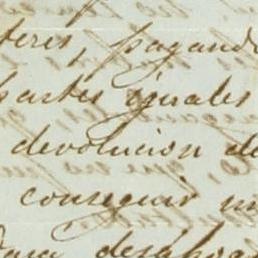 teres, pagand
partes iguales
devolucion de
conseguir
para desahoga